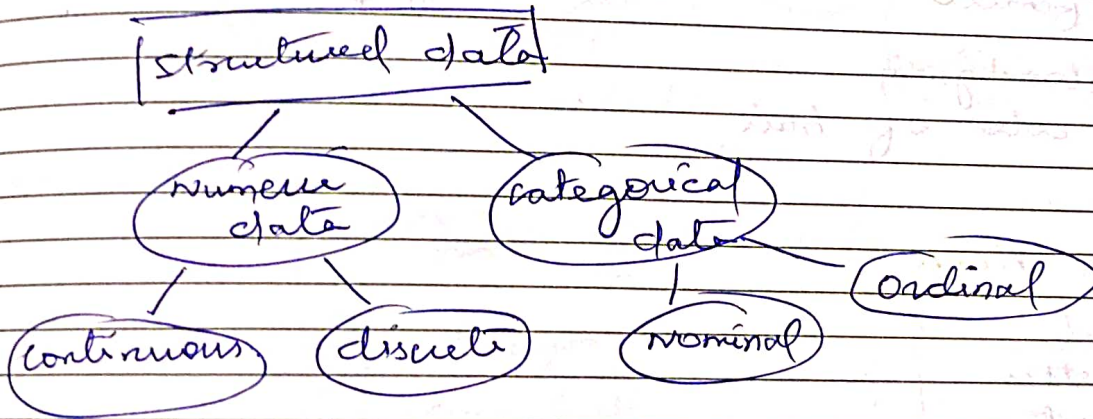 structured data
numeric
data
categorical
data
ordinal
continuous
discrete
Nominal